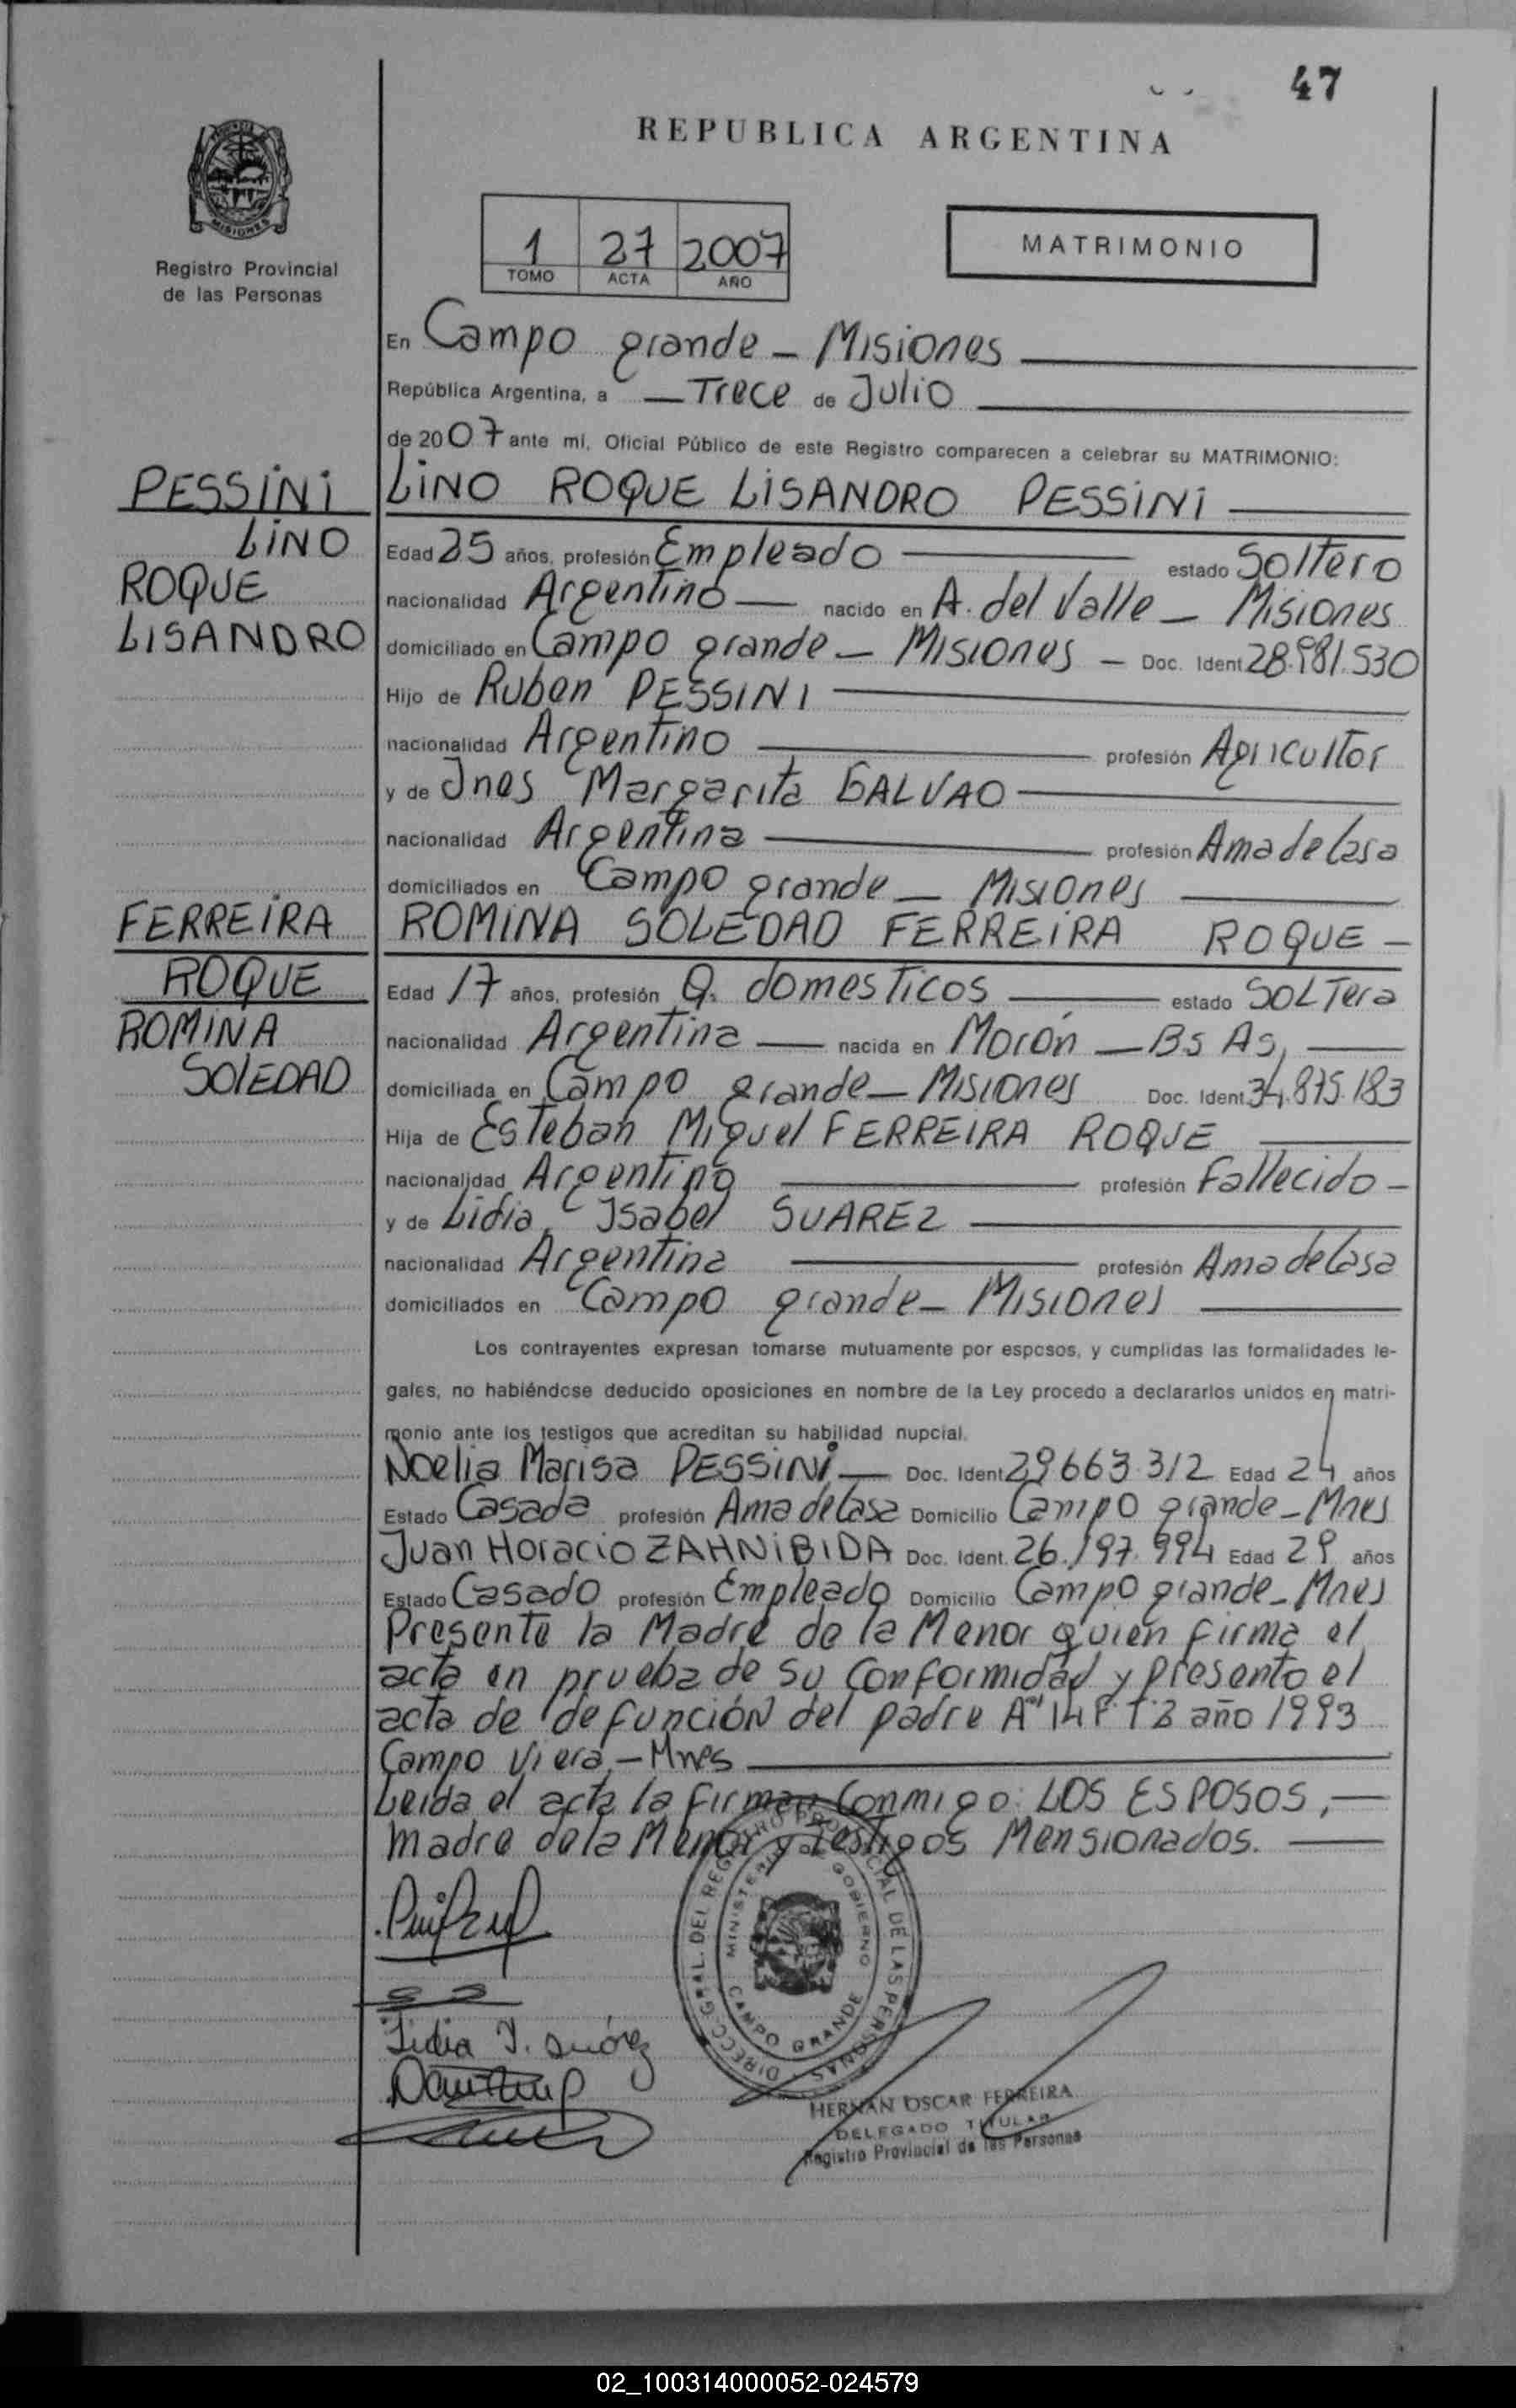 47
REPUBLICA ARGENTINA
MISIONES
Registro Provincial
de las Personas
1 27 2007
TOMO ACTA AÑO
MATRIMONIO
En Campo grande - Misiones
República Argentina, a - Trece de Julio
de 2007 ante mí, Oficial Público de este Registro comparecen a celebrar su MATRIMONIO:
PESSINI LINO ROQUE LISANDRO PESSINI
LINO Edad 25 años, profesión Empleado estado Soltero
ROQUE nacionalidad Argentino nacido en A. del Valle - Misiones
LISANDRO domiciliado en Campo grande - Misiones - Doc. Ident 28.981.530
Hijo de Ruben PESSINI
nacionalidad Argentino profesión Agricultor
y de Ines Margarita GALVAO
nacionalidad Argentina profesión Ama de Casa
domiciliados en Campo grande - Misiones
FERREIRA ROMINA SOLEDAD FERREIRA ROQUE -
ROQUE Edad 17 años, profesión Q. domesticos estado SOLTera
ROMINA nacionalidad Argentina nacida en Morón - Bs As,
SOLEDAD domiciliada en Campo grande - Misiones Doc. Ident 34.875.183
Hija de Esteban Miguel FERREIRA ROQUE
nacionalidad Argentino profesión Fallecido -
y de Lidia Isabel SUAREZ
nacionalidad Argentina profesión Ama de Casa
domiciliados en Campo grande - Misiones
Los contrayentes expresan tomarse mutuamente por esposos, y cumplidas las formalidades le-
gales, no habiéndose deducido oposiciones en nombre de la Ley procedo a declararlos unidos en matri-
monio ante los testigos que acreditan su habilidad nupcial.
Noelia Marisa PESSINI - Doc. Ident 29663.312 Edad 24 años
Estado Casada profesión Ama de Casa Domicilio Campo grande - Mnes
Juan Horacio ZAHNIBIDA Doc. Ident. 26.197.994 Edad 29 años
Estado Casado profesión Empleado Domicilio Campo grande - Mnes
Presente la Madre de la Menor quien firma el
acta en prueba de su conformidad y presento el
acta de defunción del padre A° 14 F T 2 año 1993
Campo Viera - Mnes
Leida el acta la firman conmigo: LOS ESPOSOS, -
madre de la Menor y testigos Mensionados.
DIRECC. GRAL. DEL REGISTRO PROVINCIAL DE LAS PERSONAS
MINISTERIO DE GOBIERNO
CAMPO GRANDE
Lidia I. Suárez
HERNAN OSCAR FERREIRA
DELEGADO TITULAR
Registro Provincial de las Personas
02_100314000052-024579